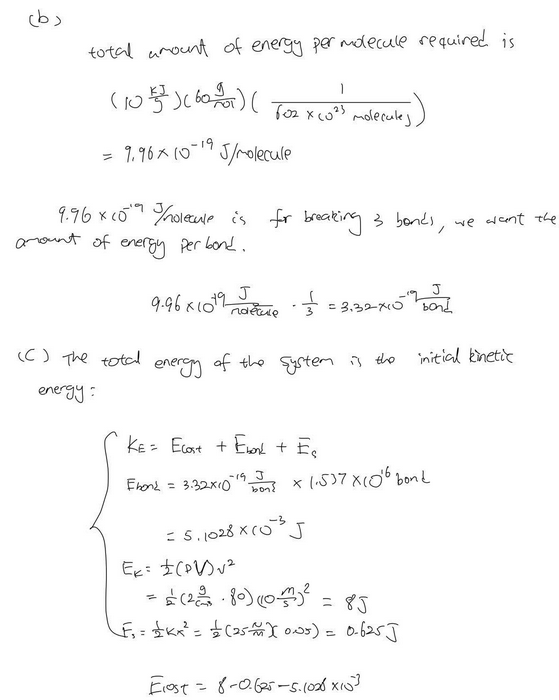 (b)
total amount of energy per molecule required is
(10 kJ/g)(60 g/mol)(1/602 × 10²³ molecules)
= 9.96 × 10⁻¹⁹ J/molecule
9.96 × 10⁻¹⁹ J/molecule is for breaking 3 bonds, we want the
amount of energy per bond.
9.96 × 10⁻¹⁹ J/molecule · 1/3 = 3.32 × 10⁻¹⁹ J/bond
(C) The total energy of the system is the initial kinetic
energy:
KE = Elost + Ebond + Es
Ebond = 3.32 × 10⁻¹⁹ J/bond × 1.537 × 10¹⁶ bond
= 5.1028 × 10⁻³ J
EK = ½(ρV)v²
= ½(2 g/cm³ · 80)(10 m/s)² = 8J
Es = ½kx² = ½(25 N/m)(0.05) = 0.625 J
Elost = 8 - 0.625 - 5.1028 × 10⁻³